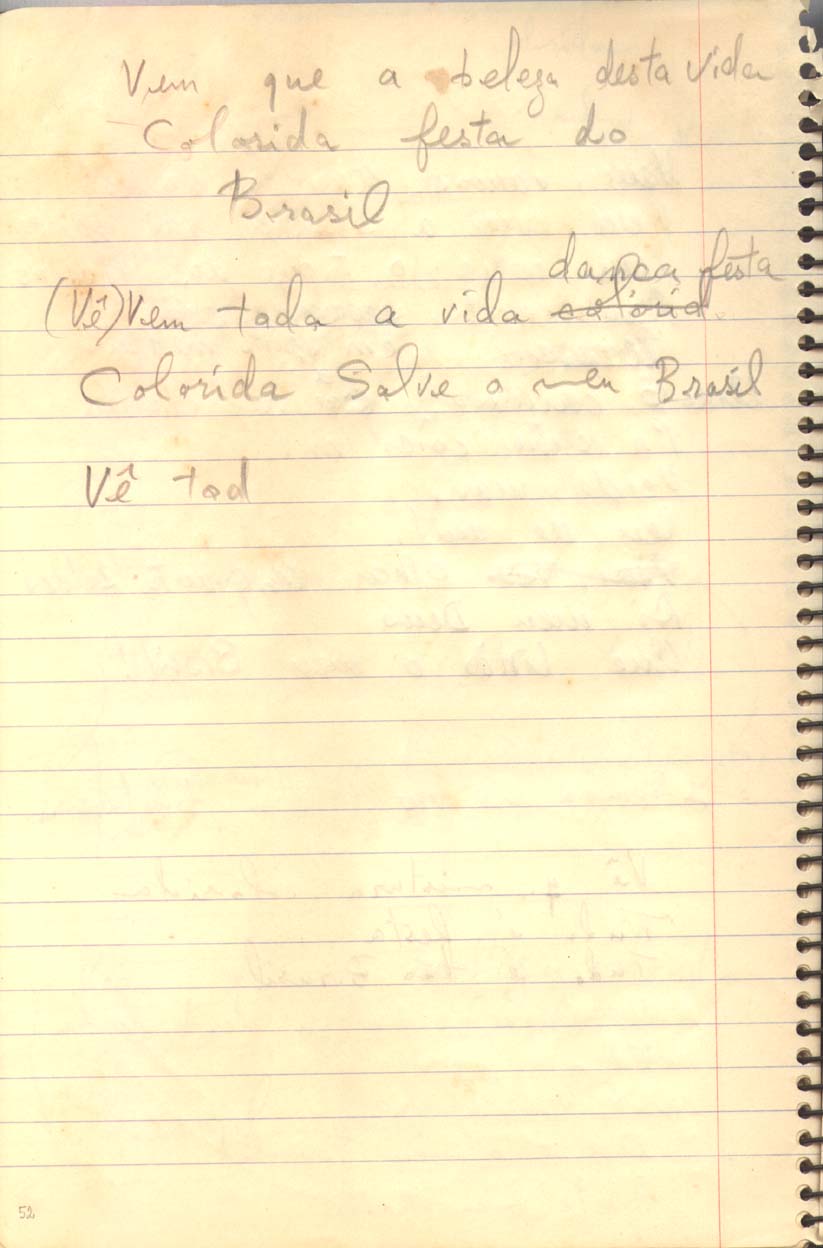 Vem que a beleza desta vida
Colorida festa do
Brasil
dança festa
(Vê) Vem toda a vida colorid
Colorida Salve o meu Brasil
Vê tod
52